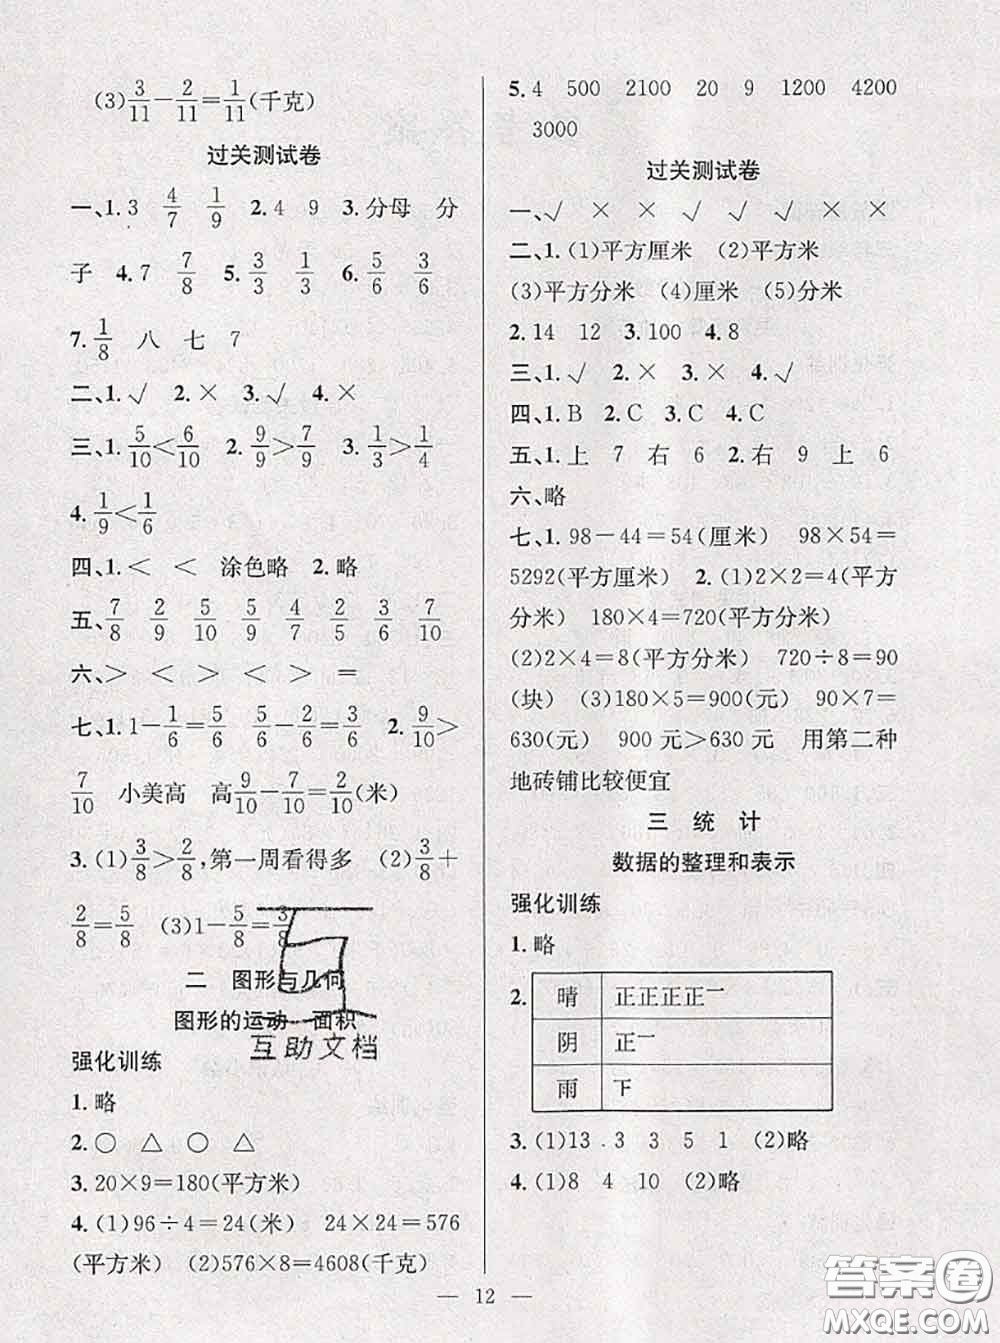 (3)3/11－2/11＝1/11(千克)
过关测试卷
一、1.3 4/7 1/9 2.4 9 3.分母 分
子 4.7 7/8 5.3/3 1/3 6.5/6 3/6
7.1/8 八 七 7
二、1.√ 2.× 3.√ 4.×
三、1.5/10＜6/10 2.9/9＞7/9 3.1/3＞1/4
4.1/9＜1/6
四、1.＜ ＜ 涂色略 2.略
五、7/8 2/9 5/10 5/9 4/10 2/5 3/6 7/10
六、＞ ＜ ＞ ＜ ＞ ＝
七、1.1－1/6＝5/6 5/6－2/6＝3/6 2.9/10＞
7/10 小美高 高9/10－7/10＝2/10(米)
3.(1)3/8＞2/8,第一周看得多 (2)3/8＋
2/8＝5/8 (3)1－5/8＝3/8
二 图形与几何
图形的运动 面积
互助文档
强化训练
1.略
2.○ △ ○ △
3.20×9＝180(平方米)
4.(1)96÷4＝24(米) 24×24＝576
(平方米) (2)576×8＝4608(千克)
5.4 500 2100 20 9 1200 4200
3000
过关测试卷
一、√ × × √ √ √ × ×
二、1.(1)平方厘米 (2)平方米
(3)平方分米 (4)厘米 (5)分米
2.14 12 3.100 4.8
三、1.√ 2.× 3.× 4.√
四、1.B 2.C 3.C 4.C
五、1.上 7 右 6 2.右 9 上 6
六、略
七、1.98－44＝54(厘米) 98×54＝
5292(平方厘米) 2.(1)2×2＝4(平方
分米) 180×4＝720(平方分米)
(2)2×4＝8(平方分米) 720÷8＝90
(块) (3)180×5＝900(元) 90×7＝
630(元) 900元＞630元 用第二种
地砖铺比较便宜
三 统 计
数据的整理和表示
强化训练
1.略
2. 晴 正正正正一
阴 正一
雨 下
3.(1)13 3 3 5 1 (2)略
4.(1)8 4 10 (2)略
— 12 —
答案圈
MXQE.COM